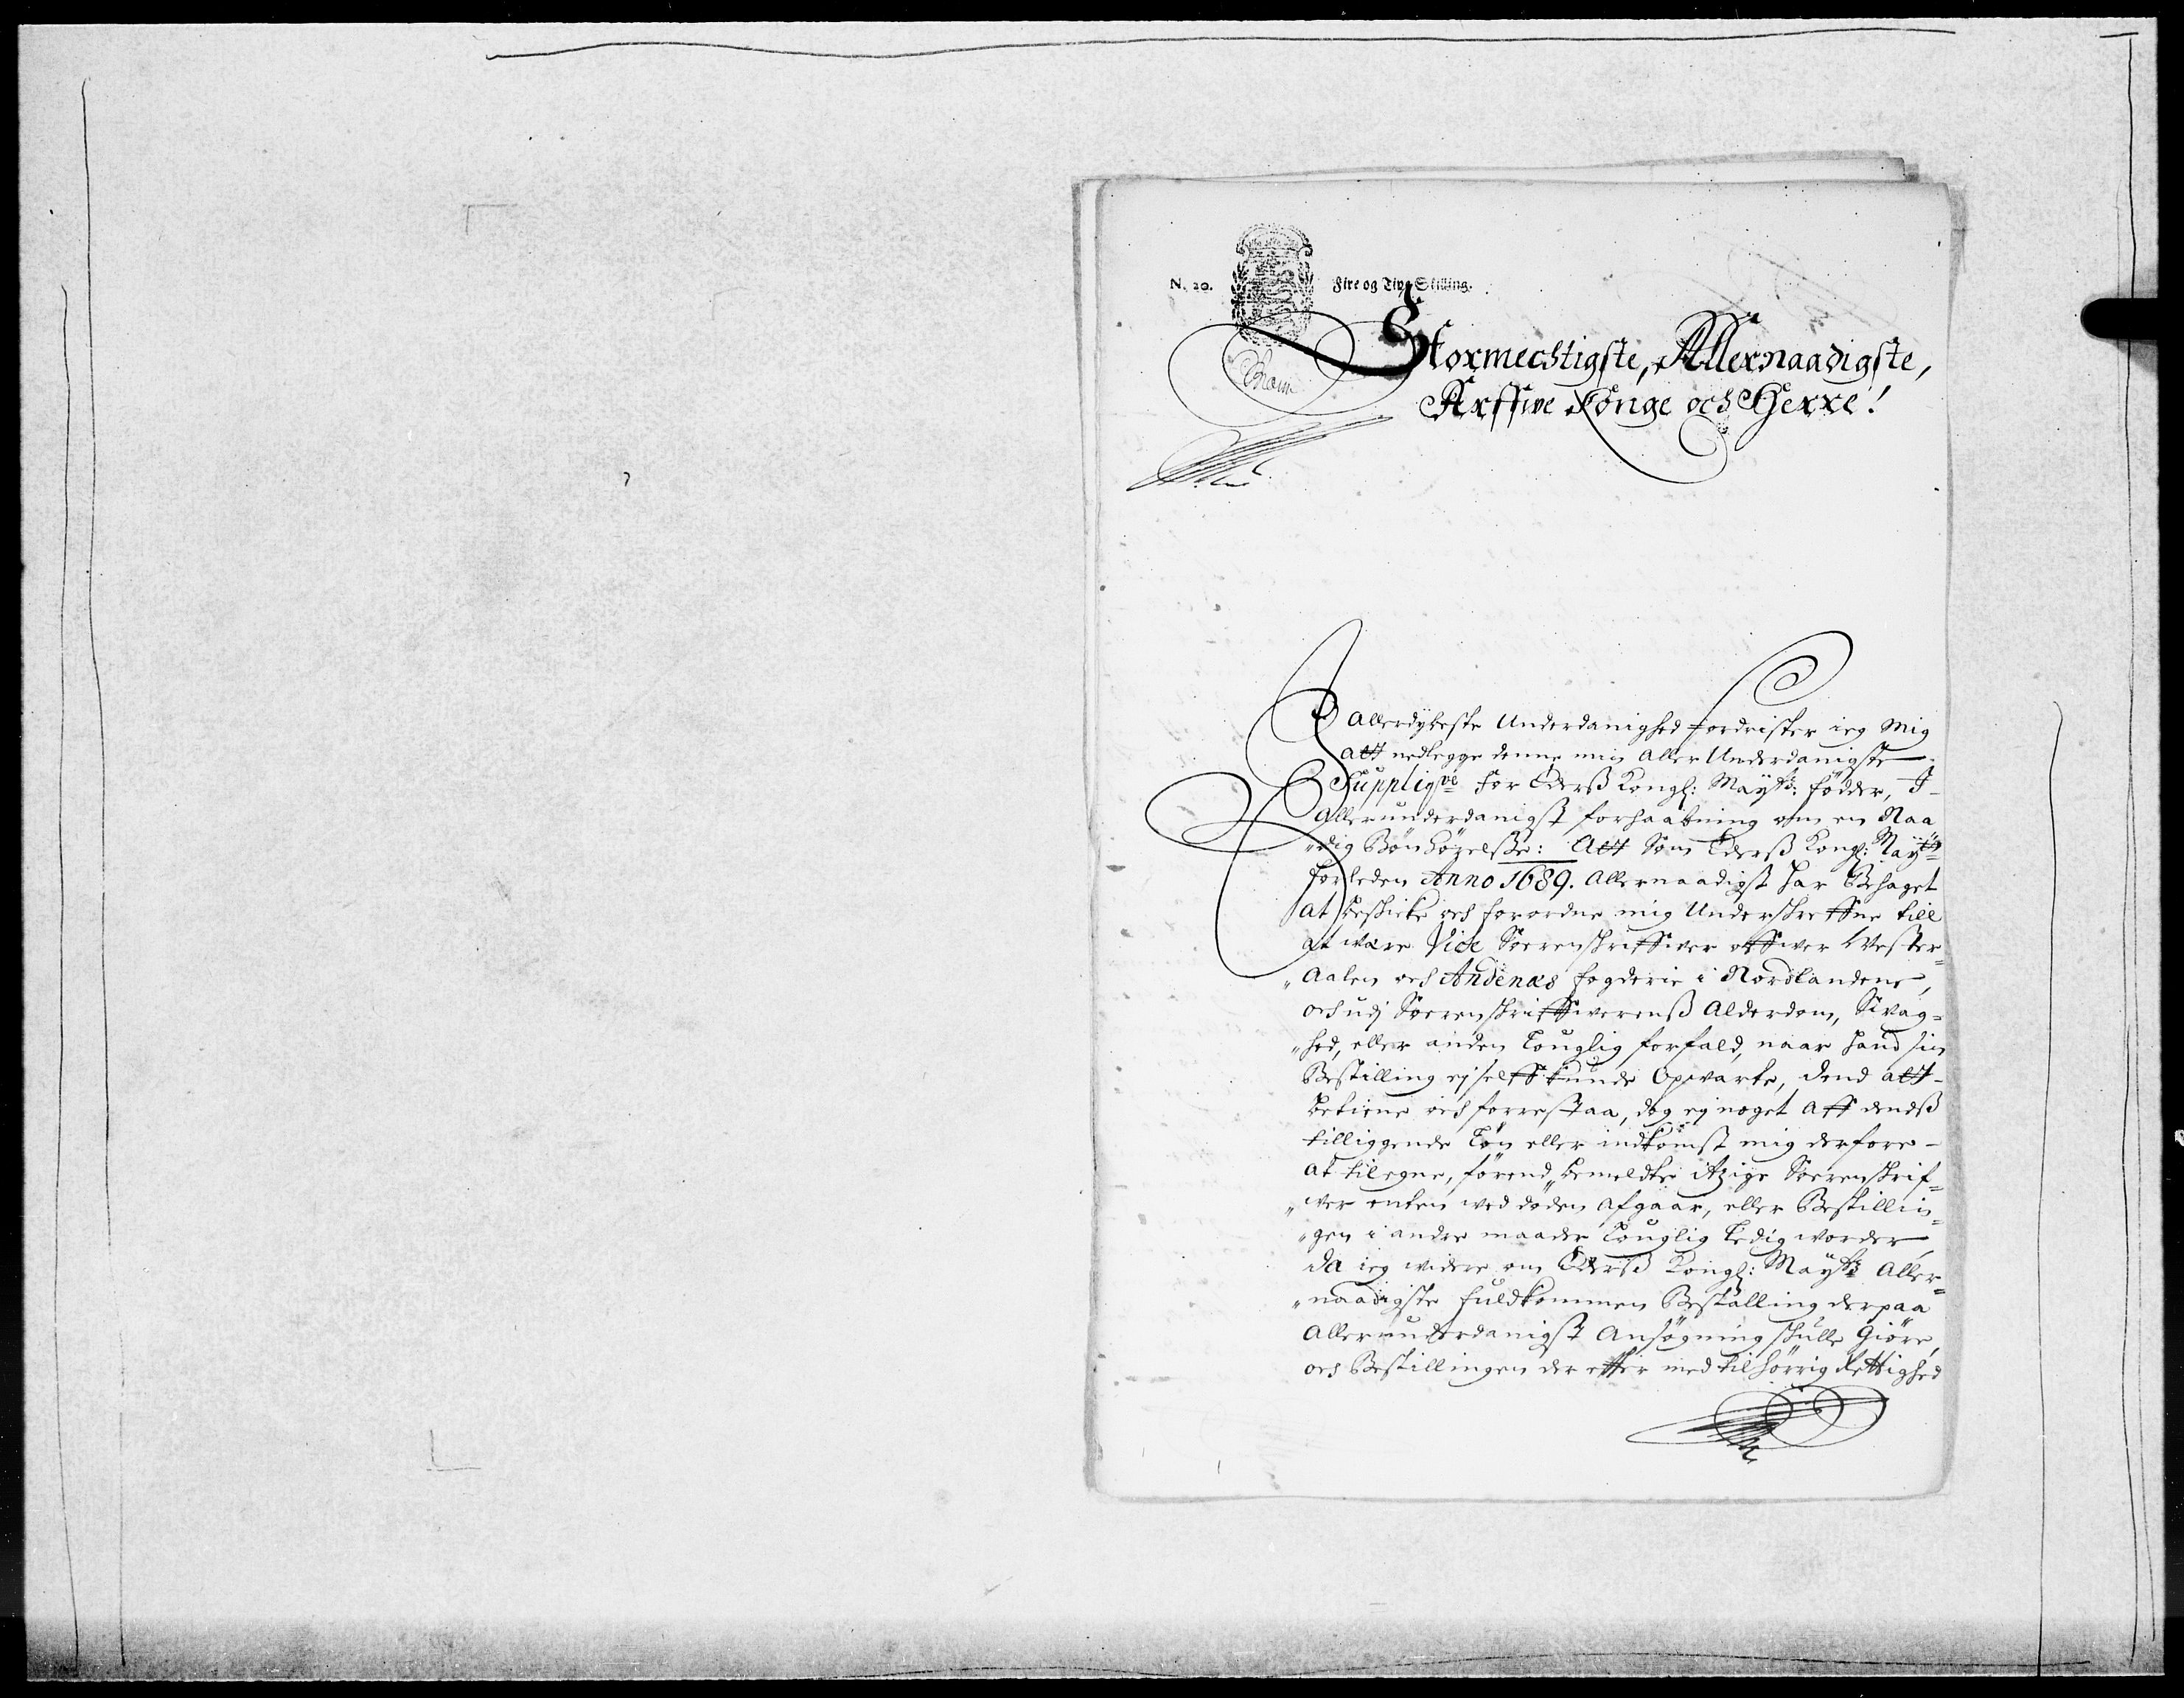 N. 20. Fire og Tive Skilling.
Stormechtigste, Allernaadigste,
Arffwe Konge och Herre!
I Allerdybeste Underdanighed fordrister ieg Mig
att nedlegge denne min Aller Underdanigste
Suppliqve for Eders Kongl: Maytts: födder, I
allerunderdanigst forhaabning om en Naa
"dig Bönhörelsse: Att Som Eders Kongl: Maytt
forleden Anno 1689. Allernaadigst har Behaget
at beskicke och forordne mig Underskreffne till
at were Vice Sorenskriffwer offwer Wester=
"Aalen och Andenæs fogderie i Nordlandene,
och udj Sorenskriffwerenss Alderdom, Swag=
"hed, eller anden Louglig forfald, naar hand sin
Bestilling ej selff kunde Opwarte, dend att
betiene och forrestaa, dog ej noget aff dendss
tilliggende Lön eller indkomst mig derfore
at tilegne, förend bemeldte itzige Sorenskrif=
"wer enten ved döden afgaar, eller Bestillin=
"gen i andre maader Louglig Ledig worder,
da ieg widere om Eders Kongl: Maytts Aller=
"naadigste fuldkommen Bestalling derpaa
Allerunderdanigst Ansögning skulle Giöre,
och Bestillingen der effter med tilhörrig Rettighed